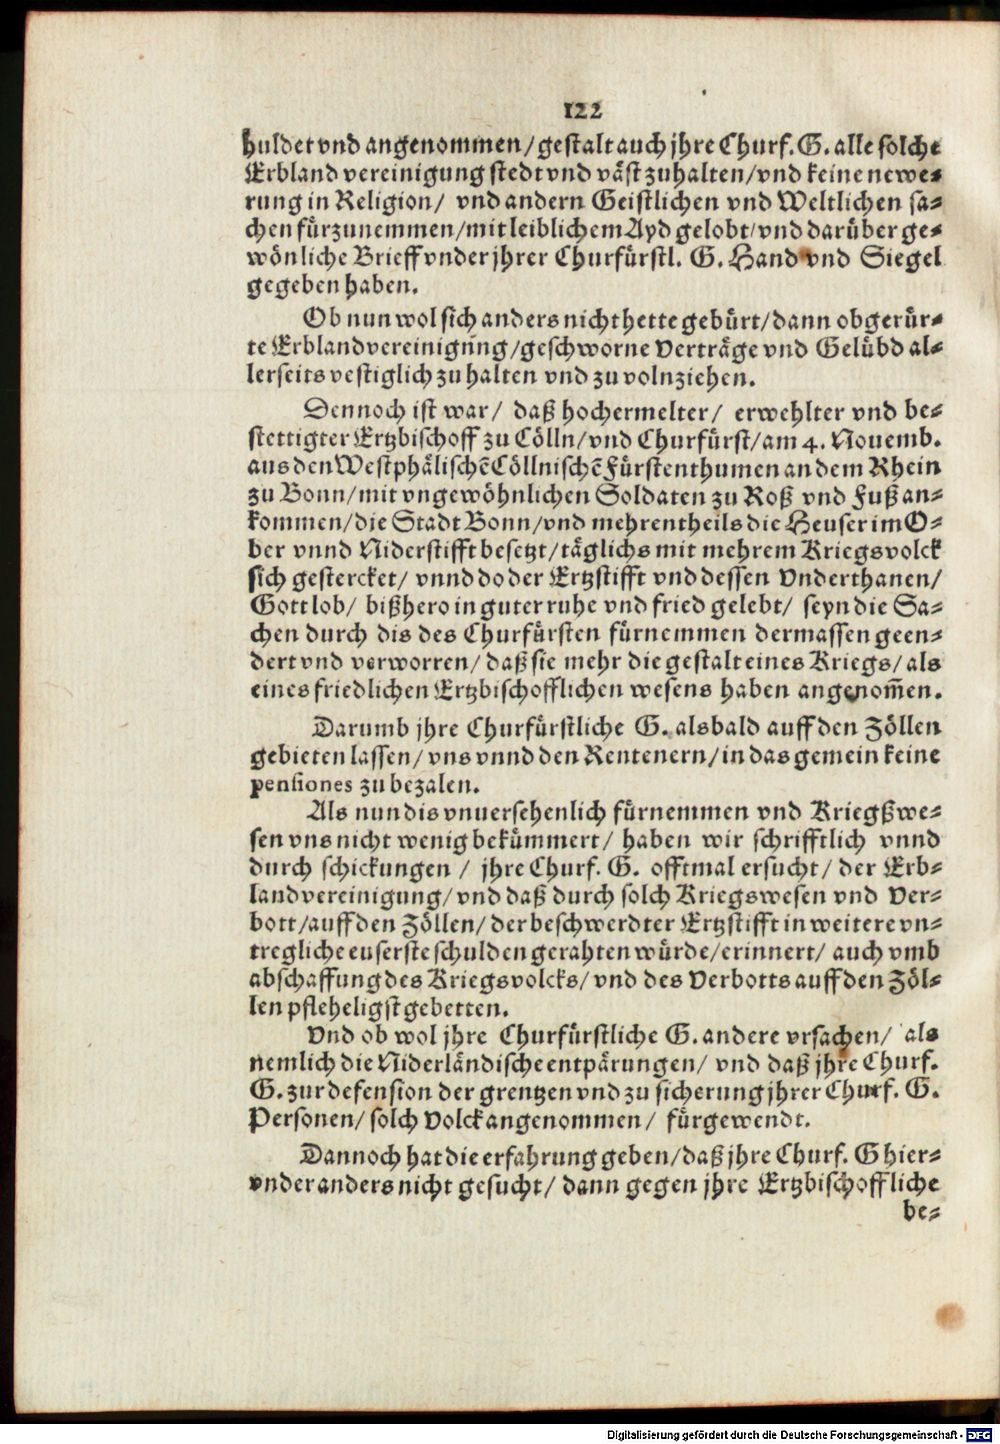 122
huldet vnd angenommen/ gestalt auch jhre Churf. G. alle solche
Erbland vereinigung stedt vnd väst zuhalten/ vnd keine newe⸗
rung in Religion/ vnd andern Geistlichen vnd Weltlichen sa⸗
chen fürzunemmen/ mit leiblichem Ayd gelobt/ vnd darüber ge⸗
wönliche Brieff vnder jhrer Churfürstl. G. Hand vnd Siegel
gegeben haben.
Ob nun wol sich anders nicht hette gebürt/ dann obgerür⸗
te Erblandvereinigung/ geschworne Verträge vnd Gelübd al⸗
lerseits vestiglich zu halten vnd zu volnziehen.
Dennoch ist war/ daß hochermelter/ erwehlter vnd be⸗
stettigter Ertzbischoff zu Cölln/ vnd Churfürst/ am 4. Nouemb.
aus den Westphälischẽ Cöllnischẽ Fürstenthumen an dem Rhein
zu Bonn/ mit vngewöhnlichen Soldaten zu Roß vnd Fuß an⸗
kommen/ die Stadt Bonn/ vnd mehrentheils die Heuser im O⸗
ber vnnd Niderstifft besetzt/ täglichs mit mehrem Kriegsvolck
sich gestercket/ vnnd do der Ertzstifft vnd dessen Vnderthanen/
Gott lob/ bißhero in guter ruhe vnd fried gelebt/ seyn die Sa⸗
chen durch dis des Churfürsten fürnemmen dermassen geen⸗
dert vnd verworren/ daß sie mehr die gestalt eines Kriegs/ als
eines friedlichen Ertzbischofflichen wesens haben angenom̃en.
Darumb jhre Churfürstliche G. alsbald auff den Zöllen
gebieten lassen/ vns vnnd den Rentenern/ in das gemein keine
pensiones zu bezalen.
Als nun dis vnuersehenlich fürnemmen vnd Kriegßwe⸗
sen vns nicht wenig bekümmert/ haben wir schrifftlich vnnd
durch schickungen / jhre Churf. G. offtmal ersucht/ der Erb⸗
landvereinigung/ vnd daß durch solch Kriegswesen vnd Ver⸗
bott/ auff den Zöllen/ der beschwerdter Ertzstifft in weitere vn⸗
tregliche euserste schulden gerahten würde/ erinnert/ auch vmb
abschaffung des Kriegsvolcks/ vnd des Verbotts auff den Zöl⸗
len pfleheligst gebetten.
Vnd ob wol jhre Churfürstliche G. andere vrsachen/ als
nemlich die Niderländische entpärungen/ vnd daß jhre Churf.
G. zur defension der grentzen vnd zu sicherung jhrer Churf. G.
Personen/ solch Volck angenommen/ fürgewendt.
Dannoch hat die erfahrung geben/ daß jhre Churf. G hier⸗
vnder anders nicht gesucht/ dann gegen jhre Ertzbischoffliche
be⸗
Digitalisierung gefördert durch die Deutsche Forschungsgemeinschaft - DFG